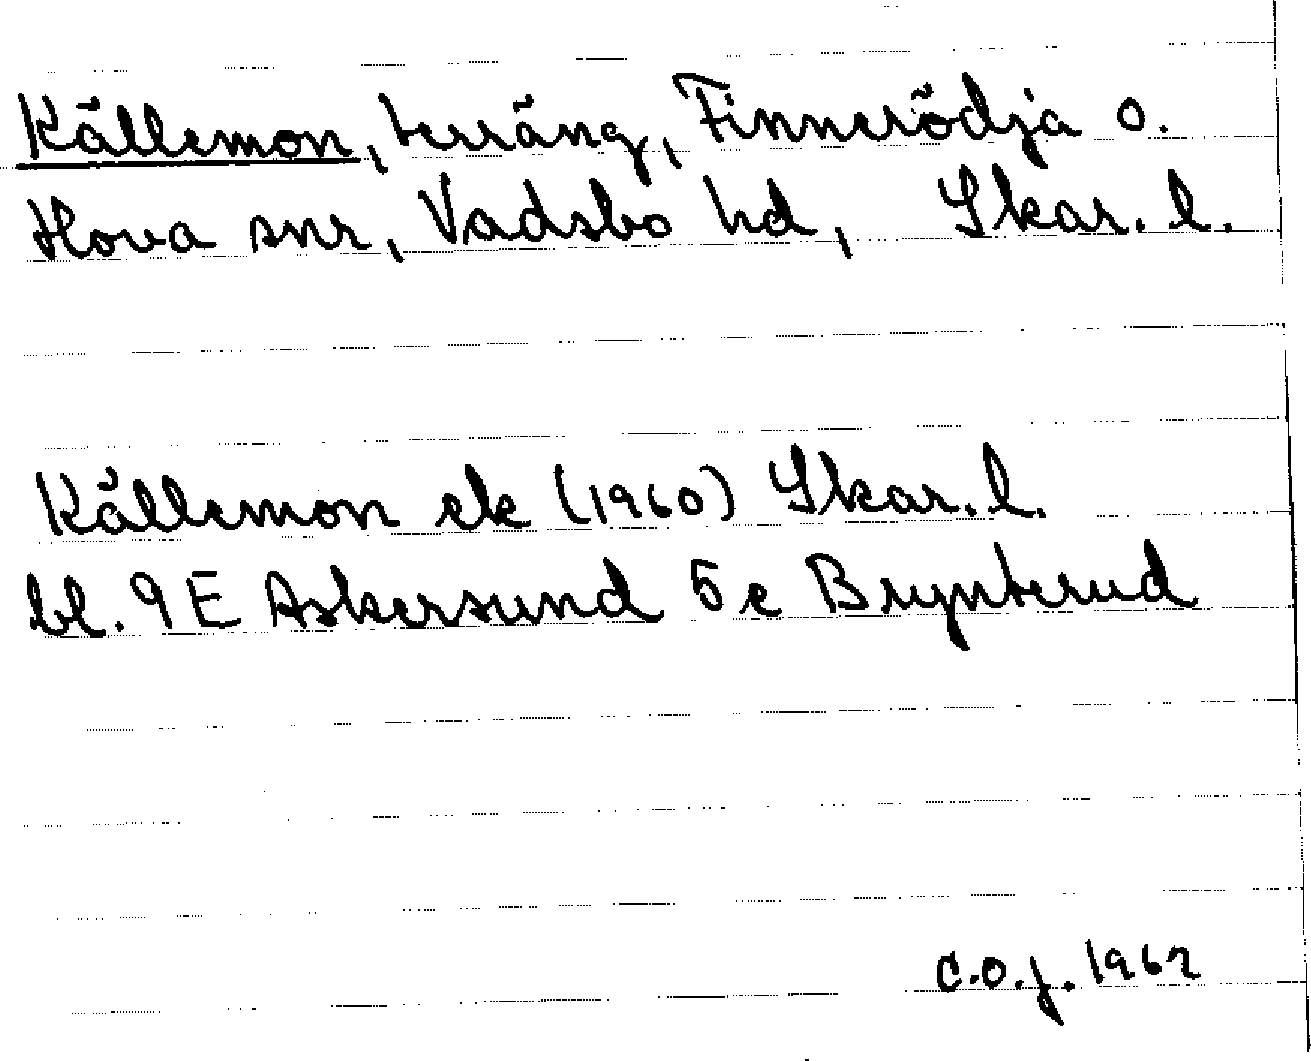 Källemon, terräng, Finnerödja o.
Hova snr, Vadsbo hd, Skar. l.
Källemon ek (1960) Skar. l.
bl. 9 E Askersund 5 c Brynterud
C.O.J. 1962